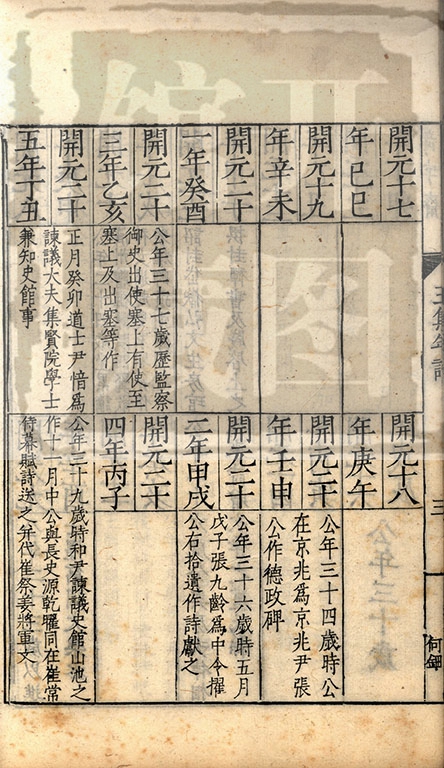 開元十七
年己巳
開元十八
年庚午
開元十九
年辛未
開元二十
年壬申
公年三十四歲時公
在京兆爲京兆尹張
公作德政碑
開元二十
一年癸酉
開元二十
二年甲戌
公年三十六歲時五月
戊子張九齡爲中令擢
公右拾遺作詩獻之
開元二十
三年乙亥
公年三十七歲歷監察
御史出使塞上有使至
塞上及出塞等作
開元二十
四年丙子
開元二十
五年丁丑
正月癸卯道士尹愔爲
諫議大夫集賢院學士
兼知史館事
公年三十九歲時和尹諫議史館山池之
作十一月中公與長史源乾曜同在崔常
待幕賦詩送之幷代崔祭姜將軍文
王集年譜
三
何鈿